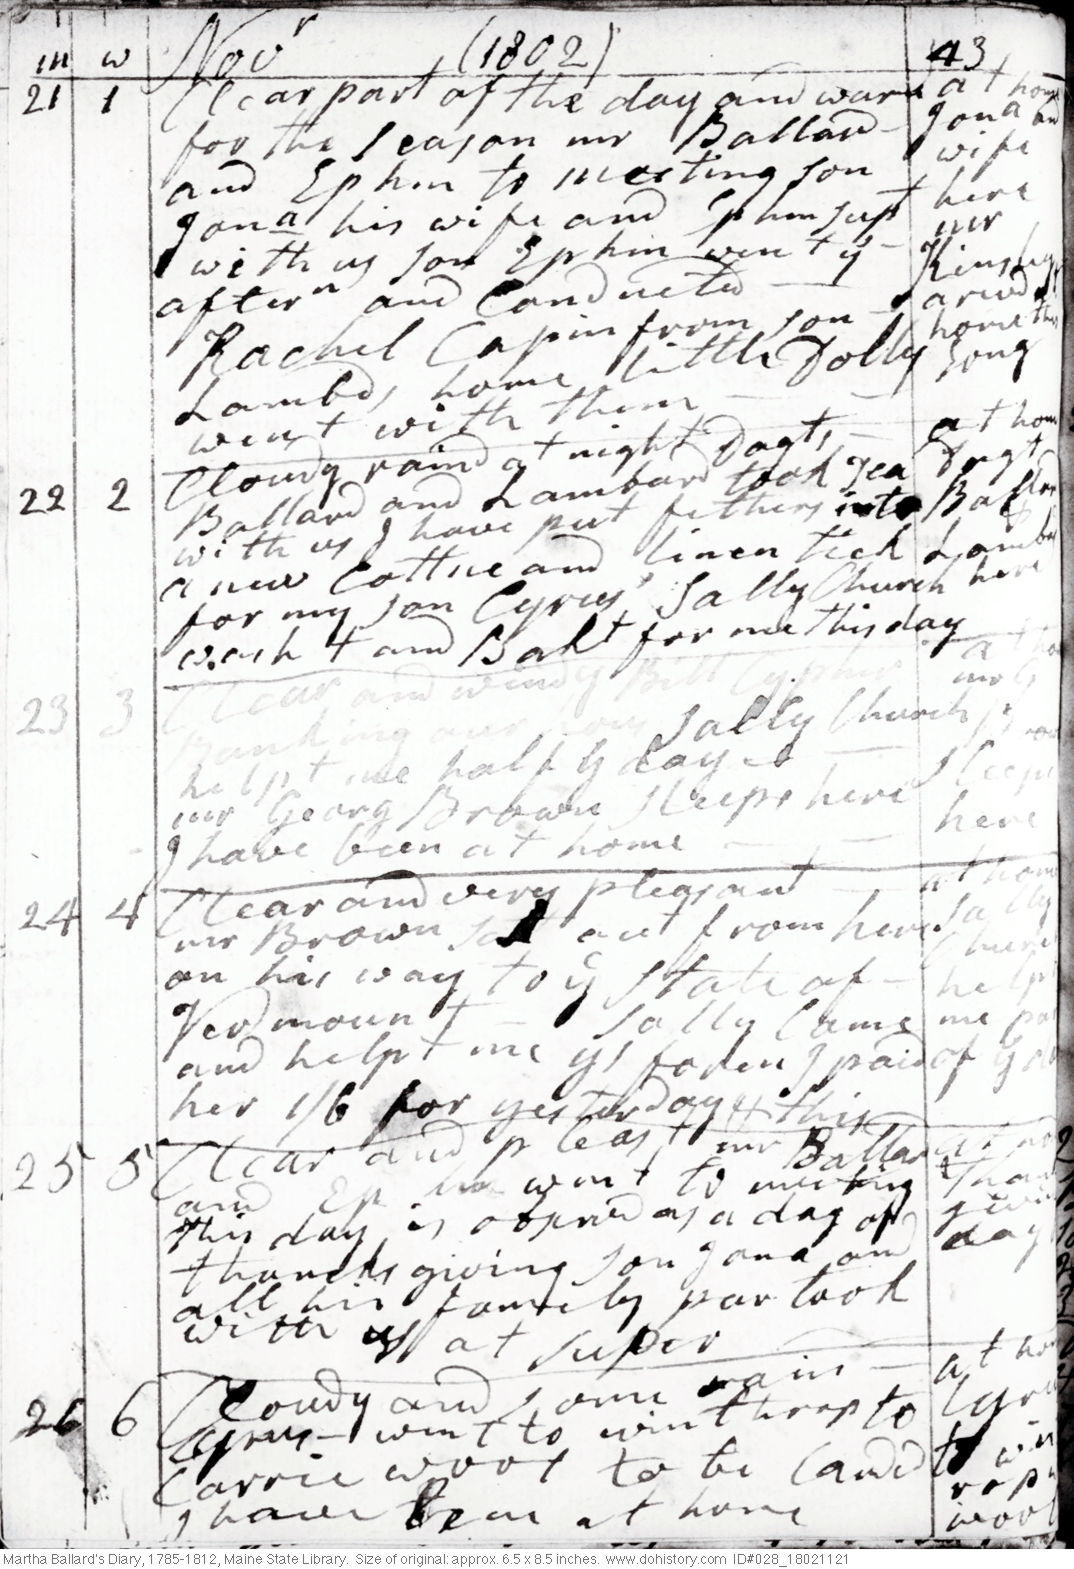 m w Novr (1802) 43
21 1 Clear part of the day and warm at home
for the Season mr Ballard Jona
and Ephm to meeting son wife
Jona his wife and Ephm supt here
with us son Ephm went ye mr
aftern and Conducted Kinsley
Rachel Capin from son home this
Lambd, home, little Dolly
went with them
22 2 Cloudy rain at night Dagts at home
Ballard and Lambard took Tea Dagt
with us I have put fethers into Ballrd
a new Cottne and linen tick Lambd
for my son Cyrus, Sally Church here
washt and Bakt for me this day
23 3 Clear and windy Bill at home
Banking our Sally Church mr G
helpt me half ye day Brown
mr Georg Brown sleeps here sleeps
I have been at home here
24 4 Clear and very pleasant at home
mr Brown Sat out from here Sally
on his way to ye State of Church
Vermount Sally Came helpt
and helpt me ys foren I paid me part
her 1/6 for yesterday & this of ye day
25 5 Clear and pleast mr Ballard at home
and Ep hm went to meeting Thanks
this day is obsrvd as a day of giving
thancksgiving son Jona and day
all his family partook
with us at super
26 6 Cloudy and some rain at home
Cyrus went to winthrop to Cyrus
Carrie wool to be Carded to winth
I have been at home rop
wool
Martha Ballard's Diary, 1785-1812, Maine State Library. Size of original: approx. 6.5 x 8.5 inches. www.dohistory.com ID#028_18021121